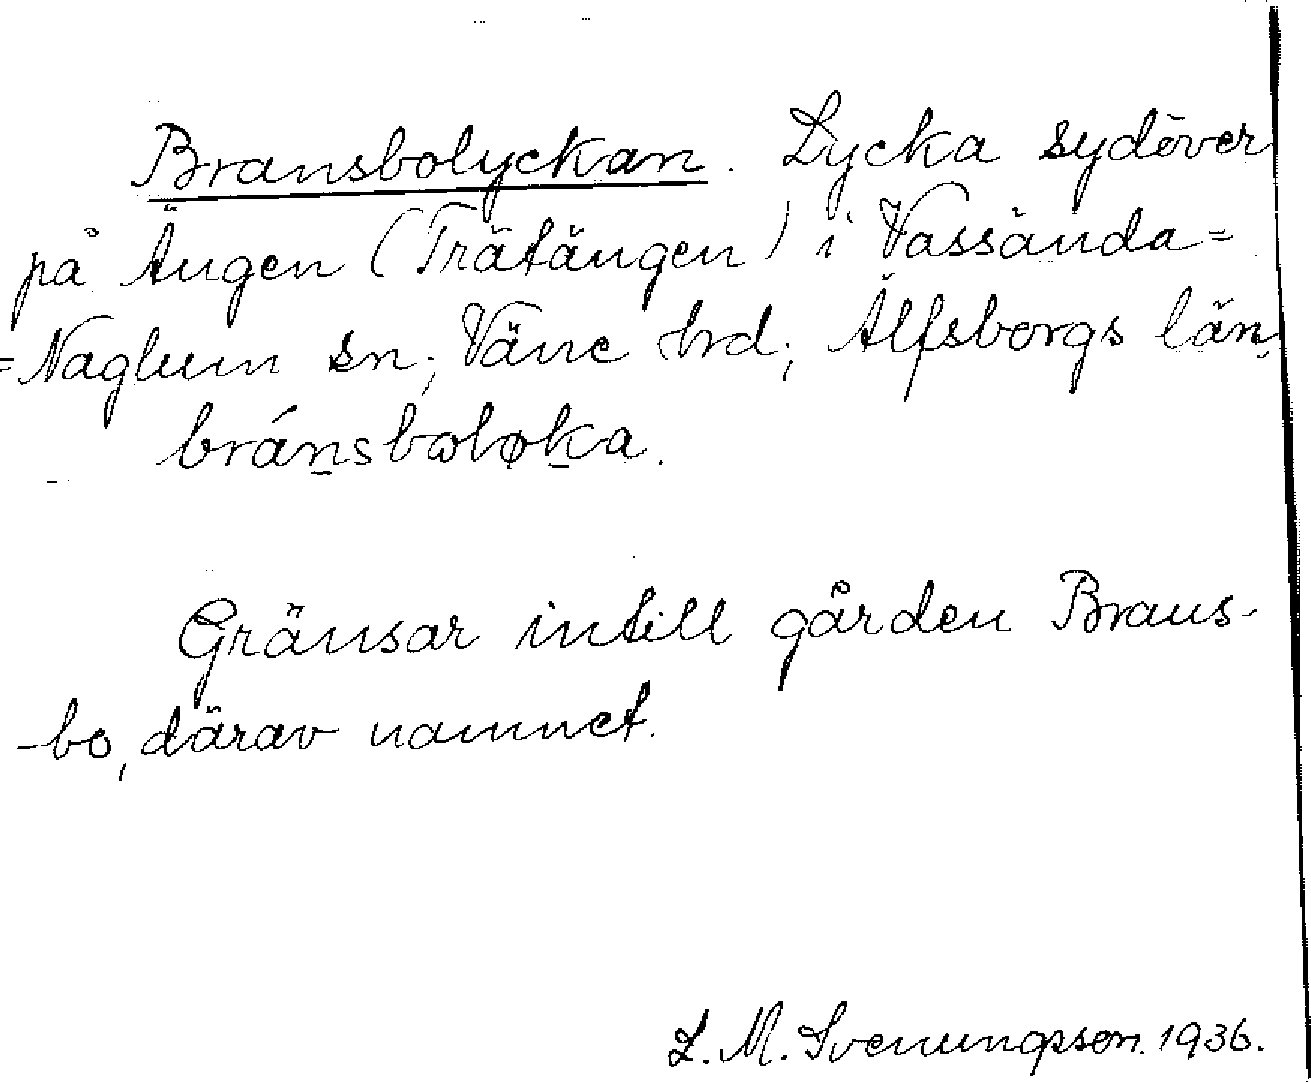 Bransbolyckan. Lycka sydöver
på Ängen (Trätängen) i Vassända=
=Naglum sn; Väne hrd; Älfsborgs län.
brán̲sbɷløk̲a.
Gränsar intill gården Brans-
-bo, därav namnet.
L. M. Svenungsson. 1936.